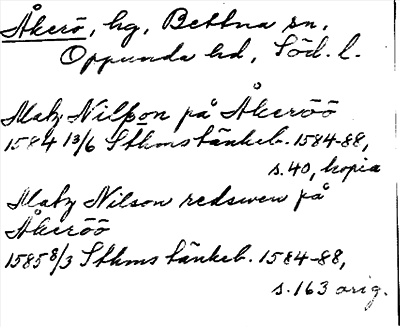 Åkerö, hg, Bettna sn,
Oppunda hd, Söd. l.
Matz Nilsson på Åkeröö
1584 13/6 Sthms tänkeb. 1584-88,
s. 40, kopia
Matz Nilson redswen på
Åkeröö
1585 8/3 Sthms tänkeb. 1584-88,
s. 163 orig.